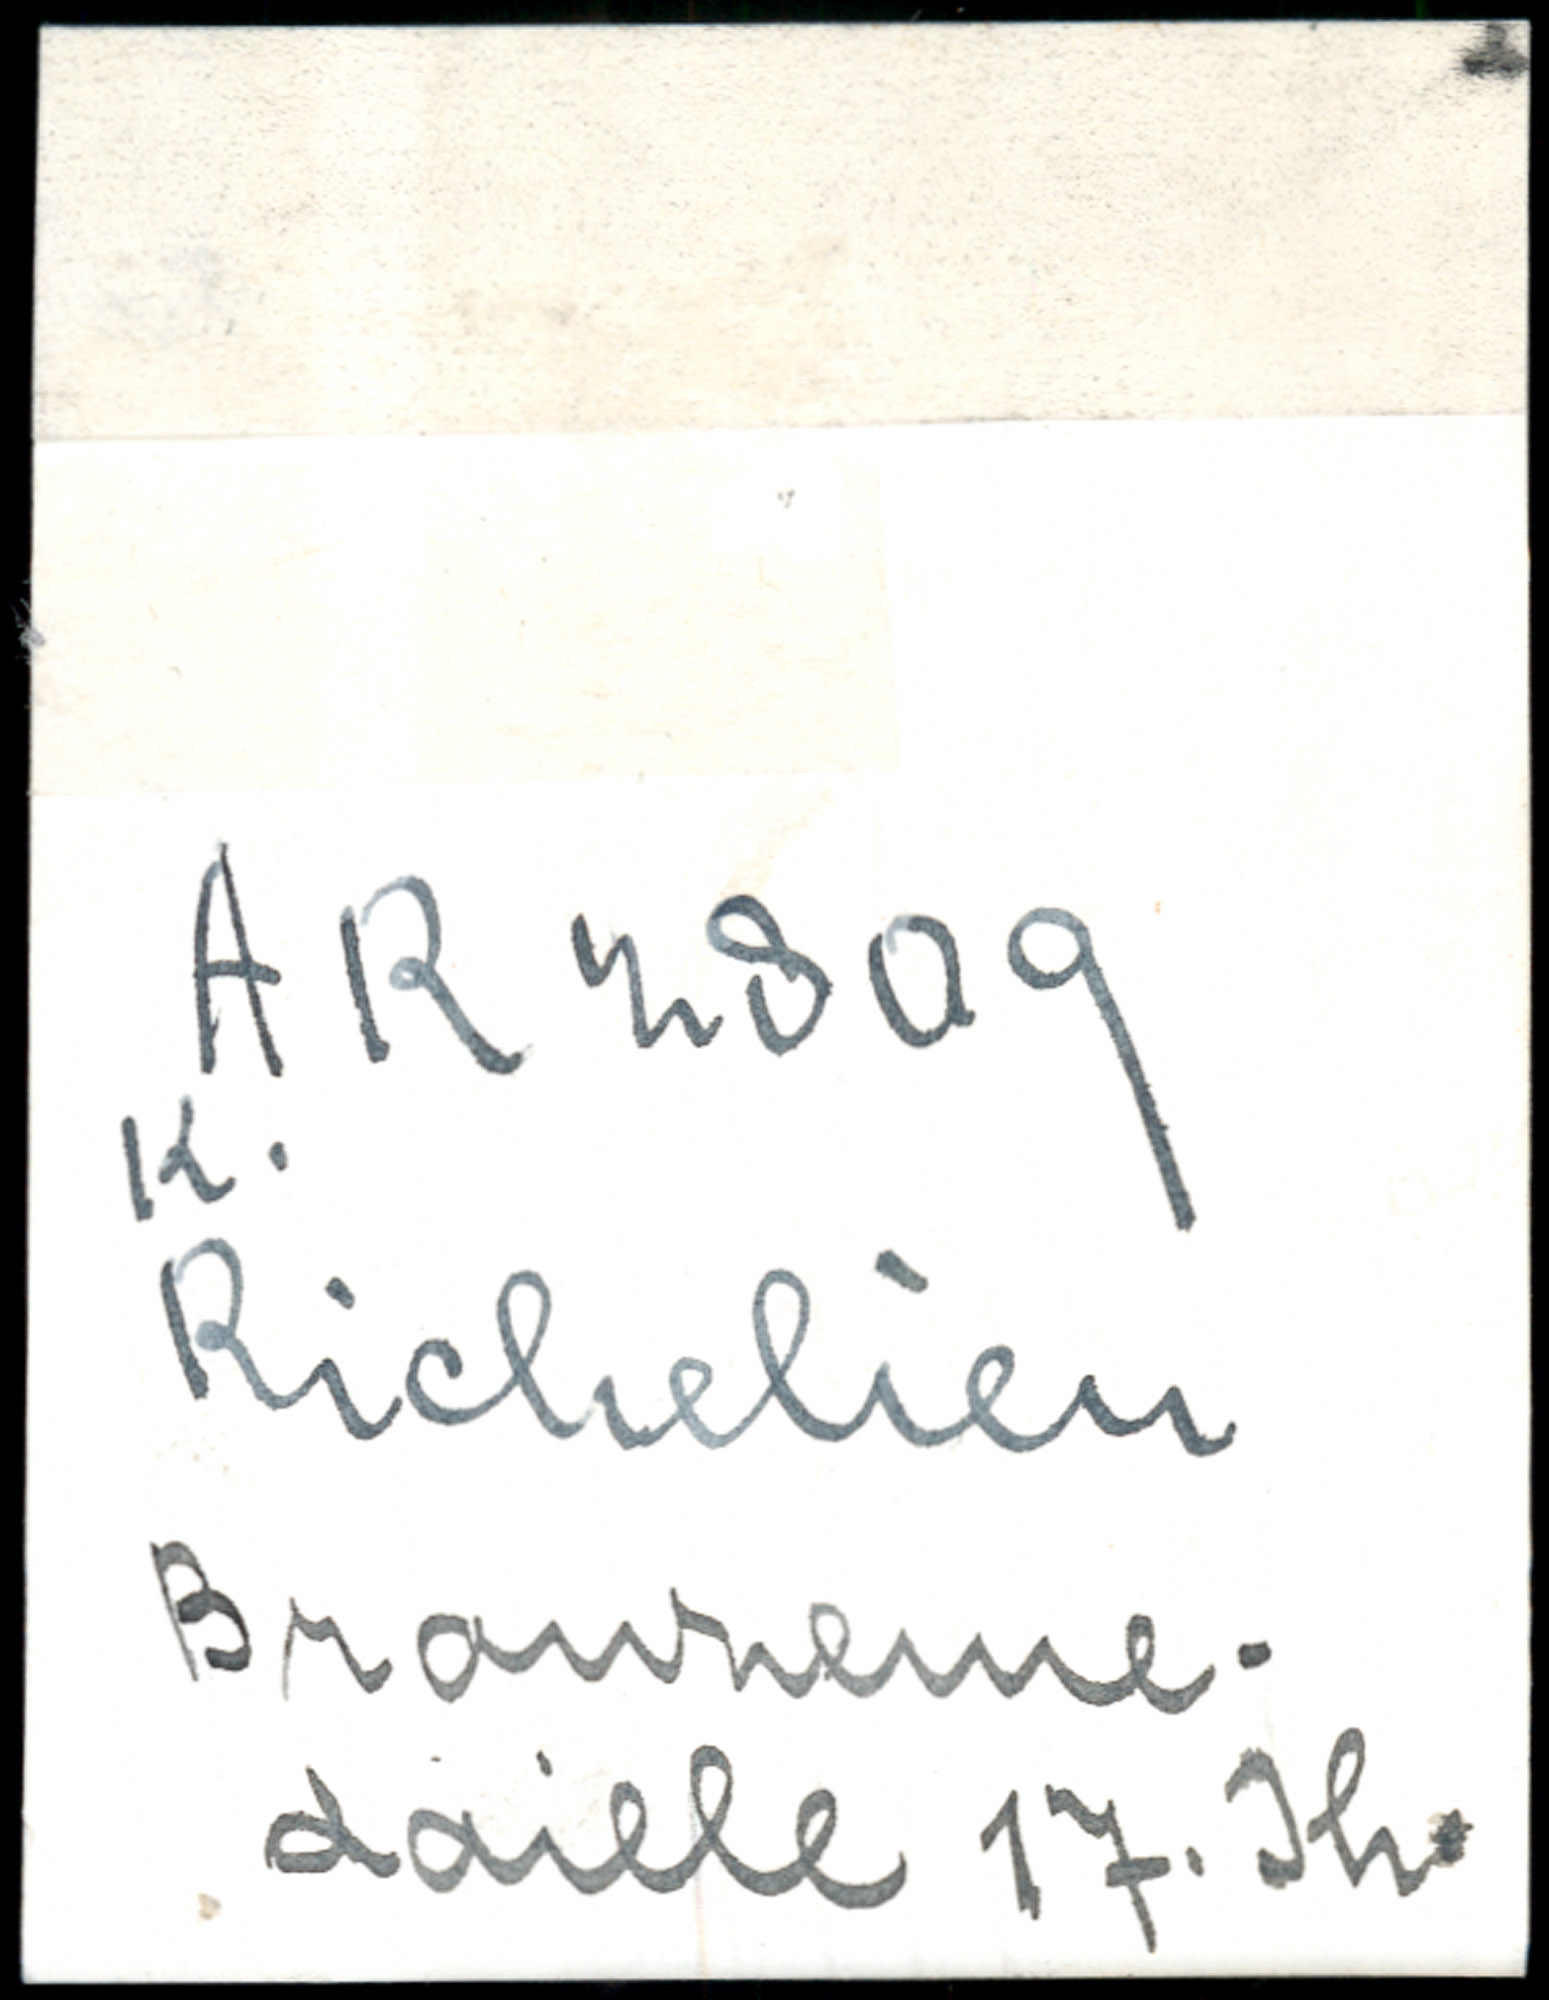 AR 2809
K.
Richelieu
Bronzeme-
daille 17. Jh.